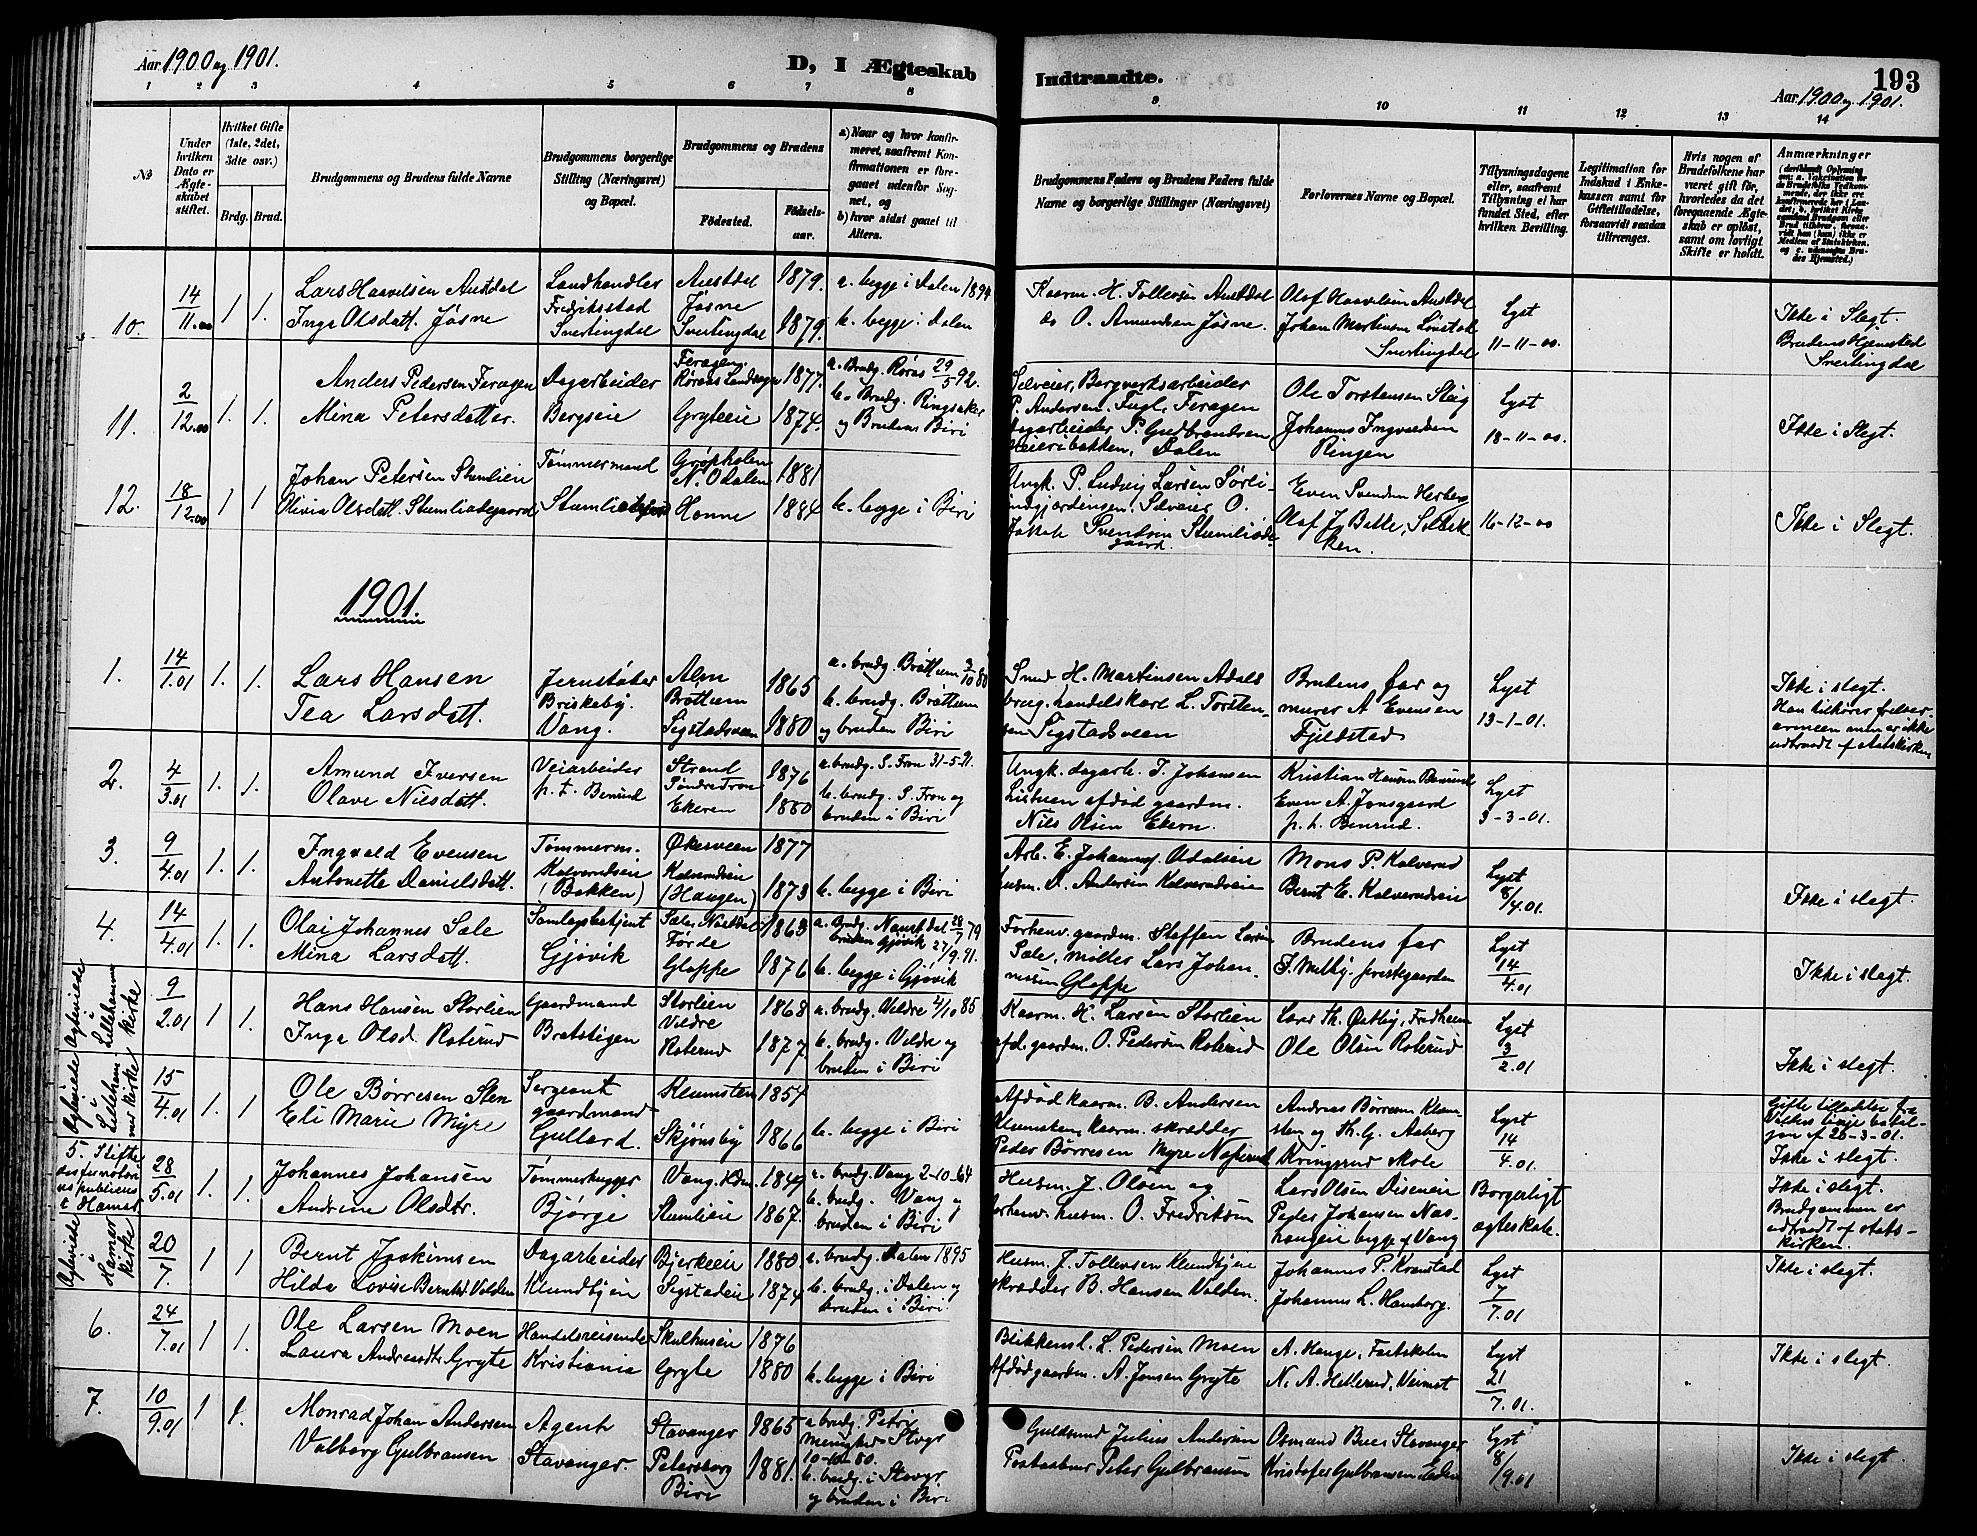 Aar 1900 og 1901.
D, I Ægteskab
Indtraadte.
193
Aar 1900 og 1901.
1 2 3 4 5 6 7 8 9 10 11 12 13 14
No
Under hvilken Dato er Ægteskabet stiftet.
Hvilket Gifte (1ste, 2det, 3dte osv.)
Brdg. Brud.
Brudgommens og Brudens fulde Navne
Brudgommens borgerlige Stilling (Næringsvei) og Bopæl.
Brudgommens og Brudens
Fødested.
Fødselsaar.
a) Naar og hvor konfirmeret, saafremt Konfirmationen er foregaaet udenfor Sognet, og
b) hvor sidst gaaet til Alters.
Brudgommens Faders og Brudens Faders fulde Navne og borgerlige Stillinger (Næringsvei)
Forlovernes Navne og Bopæl.
Tillysningsdagene eller, saafremt Tillysning ei har fundet Sted, efter hvilken Bevilling.
Legitimation for Indskud i Enkekassen samt for Giftetilladelse, forsaavidt saadan tiltrænges.
Hvis nogen af Brudefolkene har været gift før, hvorledes da det foregaaende Ægteskab er opløst, samt om lovligt Skifte er holdt.
Anmærkninger
10. 14/11.00 1 1.
Lars Haavelsen Austdal
Inga Olsdatt. Jøsne
Landhandler
Fredriksstad
Svertingdal
Austdal
Jøsne
Svertingdal
1879.
1879.
a. begge i Dalen 1894
b. begge i Dalen
Kaarm. H. Tollevsen Austdal
do O. Amundsen Jøsne.
Olaf Haavelsen Austdal
Johan Martinsen
Svertingdal
Lyst
11-11-00.
Ikke i Slegt.
Brudens Hjemsted
Svertingdal
11. 2/12.00 1. 1.
Anders Pedersen Feragen
Mina Petersdatter.
Dagarbeider
Bergseie
Feragen.
Røraas Landsogn
Gryteeie
1877.
1874.
a. Brudg. Røros 29/5 92.
b. Brudg. Ringsaker
og Bruden i Biri
Selveier, Bergverksarbeider
P. Andersen. Fugl. Feragen
Dagarbeider P. Gudbrandsen
Meieribakken, Dalen
Ole Torstensen Steig
Johannes Ingvardsen
Ringen
Lyst
18-11-00.
Ikke i Slegt.
12. 18/12.00 1 1
Johan Petersen Stumlien
Olivia Olsdatt. Stumliødegaard
Tømmermand
Grøpholen
N. Odalen
Honne
1881
1884
b. begge i Biri
Ungk. P. Ludvig Larsen
Selveier O.
Jakob Svendsen Stumliøde-
gaard.
Even Svendsen
16-12-00
Ikke i Slegt.
1901.
1. 14/1.01 1. 1.
Lars Hansen
Tea Larsdatt.
Jernstøber
Briskeby.
Vang.
Alm
Brøttum
Sigstadsveen
1865
1880
a. brudg. Brøttum 3/10 80
b. brudg. Brøttum
og bruden Biri
Smed H. Martinsen Adals
brug. handelskarl L. Torsten-
sen Sigstadsveen
Brudens far og
murer A. Evensen
Fjeldstad
Lyst
13-1-01.
Ikke i slegt.
Han tilhører frelser-
armeen men er ikke
udtraadt af statskirken
2. 4/3.01 1. 1.
Amund Iversen
Olave Nilsdatt.
Veiarbeider
p. t. Benrud
Strand
Søndre Fron
Ekeren
1876
1880
a. brudg. S. Fron 31-5-91.
b. brudg. S. Fron og
bruden i Biri
Ungk. dagarb. I. Johansen
afdød gaardm.
Nils Olsen Ekern.
Kristian Hansen Benrud
Even A. Jonsgaard
p. t. Benrud.
Lyst
3-3-01.
3. 9/4.01 1. 1.
Ingvald Evensen
Antonette Danielsdatt.
Tømmerm.
Kalverudseie
(Bakken)
Økersveen
Kalverudeie
(Haugen)
1877
1873
b. begge i Biri
Arb. E. Johannes. Odalseie
husm. D. Andersen Kalverudseie
Mons P. Kalverud
Bernt E. Kalverudseie
Lyst
8/4.01.
Ikke i slegt.
4. 14/4.01 1. 1.
Olai Johannes Sæle
Mina Larsdatt.
Samlagsbetjent
Gjøvik
Førde
Gloppe
1863
1876
a. Brudg. Naustdal 28/7 79
bruden Gjøvik 27/9.91.
b. begge i Gjøvik
Forhenv. gaardm. Steffen Larsen
Sæle, møller Lars Johan-
nesen Gloppe
Brudens far
Lyst
14/4.01
Ikke i slegt.
Egteviede i Lillehammer kirke
9/2.01 1 1.
Hans Hansen Storlien
Inga Olsd. Roterud
Gaardmand
Bratstigen
Storlien
Veldre
Roterud
1868
1877
a. brudg. Veldre 4/10 85
b. brudg. Veldre og
bruden i Biri
Kaarm. H. Larsen Storlien
afd. gaardm. O. Pedersen Roterud
Lars Th. Østby, Fredheim
Ole Olsen Roterud
Lyst
3/2.01
Ikke i slegt.
Egteviede i Lillehammer kirke
15/4.01 1. 1
Ole Børresen Sten
Eli Marie Myre
Sergeant
gaardmand
Gullord.
Klumsten
Skjønsby
1854
1866
b. begge i Biri
Afdød kaarm. B. Andersen
Klumsten, kaarm. skrædder
Peder Børresen Myre
Andreas Børresen Klum-
sten og Th. G. Aaberg
Kringsrud Skole
Lyst
14/4.01
Ikke i slegt.
5. Stiftedes for notarius publicus i Hamar
28/5.01 1. 1.
Johannes Johansen
Andrine Olsdtr.
Tømmerhugger
Bjørge
Vang. Hdm.
Stumlien
1849
1867.
a. brudg. Vang 2-10-64
b. brudg. Vang og
bruden i Biri
Husm. J. Olsen og
forhenv. husm. O. Fredriksen
Lars Olsen Diseneie
Peder Johansen Nas-
haugeie begge af Vang
Borgerligt
egteskab.
Ikke i slegt.
Brudgommen er
udtraadt af stats-
kirken.
Egteviede i Hamar kirke
20/7. 1 1
Bernt Joakimsen
Hilda Lovise Berntsd. Volden
Dagarbeider
Klundbyeie
Bjerkeeie
Sigstadeie
1880
1874
a. brudg. Dalen 1895
b. brudg. i Dalen og
bruden i Biri
Husm. J. Tollevsen Klundbyeie
skrædder B. Hansen Volden.
Johannes P. Kronstad
Johannes L. Hamborg.
Lyst
7/7.01
Ikke i slegt.
6. 24/7.01 1 1.
Ole Larsen Moen
Laura Andreasdtr. Gryte
Handelsreisende
Kristiania
Skulhuseie
Gryte
1876
1880
b. begge i Biri
Blikkensl. L. Pedersen Moen
Afdød gaardm. A. Jonsen Gryte
A. Hauge, Fastskolen
N. A. Hellerud,
Lyst
21/7.01.
Ikke i slegt.
7. 10/9.01 1 1.
Monrad Johan Andersen
Valborg Gulbransen
Agent
Stavanger.
Stavanger
Petersborg
Biri
1865
1881.
a brudg. Petri
Menighed Stvgr
10-10-80.
b. brudg. i Stavgr
og bruden i Biri
Guldsmed Julius Andersen
Postaabner Peter Gulbransen
Osmund Bues Stavanger
Kristofer Gulbransen
Lyst
8/9.01
Ikke i slegt.